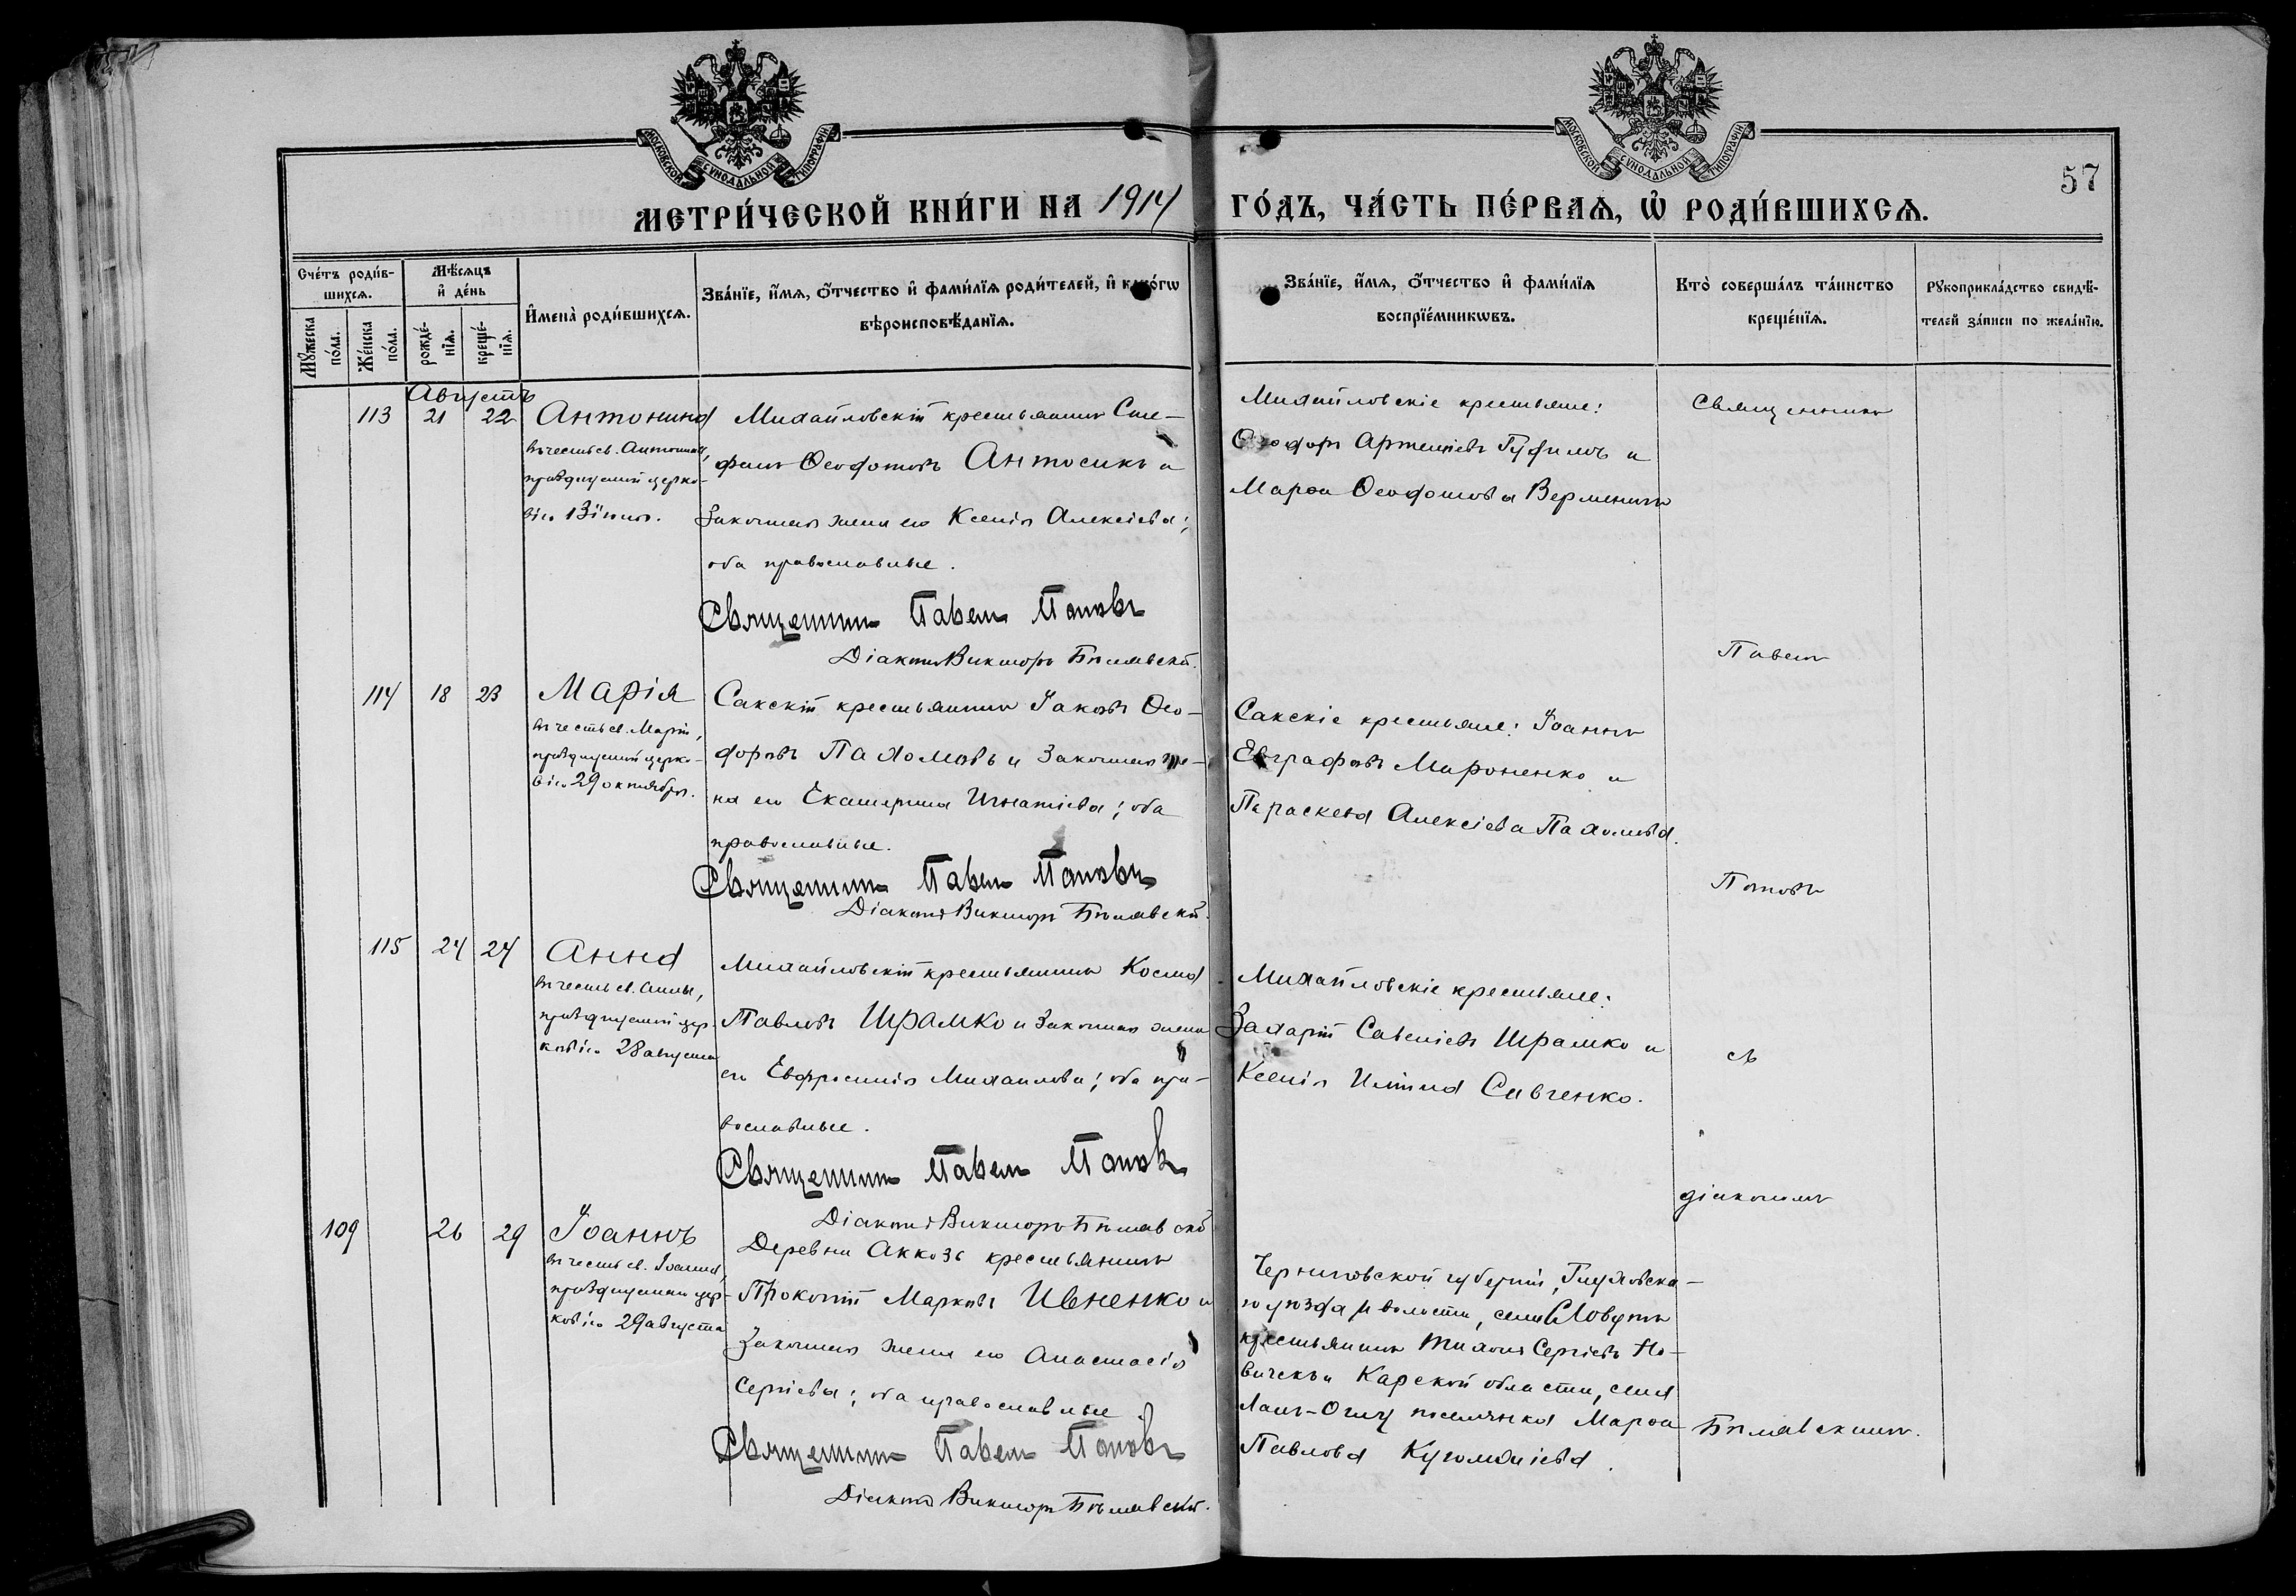 МОСКОВСКОЙ СѴНОДАЛЬНОЙ ТИПОГРАФІИ.
МОСКОВСКОЙ СѴНОДАЛЬНОЙ ТИПОГРАФІИ.
57
МЕТРИ́ЧЕСКОЙ КНИ́ГИ НА 1914 ГО́ДЪ, ЧА́СТЬ ПЕ́РВАѦ, Ѡ҆ РОДИ́ВШИХСѦ.
Сче́тъ роди́в-
шихсѧ.
Мꙋ́жеска по́ла.
Же́нска по́ла.
Мѣ́сѧцъ
и҆ де́нь
рожде́-
нїѧ.
креще́-
нїѧ.
И҆мена̀ роди́вшихсѧ.
Зва́нїе, и҆́мѧ, ѻ҆́тчество и҆ фами́лїѧ роди́телей, и҆ како́гѡ
вѣроисповѣ́данїѧ.
Зва́нїе, и҆́мѧ, ѻ҆́тчество и҆ фами́лїѧ
воспрїе́мникѡвъ.
Кто̀ соверша́лъ та́инство
креще́нїѧ.
Рꙋкоприкла́дство свидѣ́-
телей за́писи по жела́нїю.
Августъ
113 21 22 Антонина
въ честь св. Антонины,
празднуемой церко-
вію 13 іюня.
Михайловскій крестьянинъ Сте-
фанъ Ѳеодотовъ Антосикъ и
законная жена его Ксенія Алексіева;
оба православные.
Священникъ Павелъ Поповъ
Діаконъ Викторъ Бѣлявскій.
Михайловскіе крестьяне:
Ѳеодоръ Артеміевъ и
Марѳа Ѳеодотова
Священникъ
Павелъ
114 18 23 Марія
въ честь св. Маріи,
празднуемой церко-
вію 29 октября.
Сакскій крестьянинъ Іаковъ Ѳео-
доровъ Пахомовъ и законная же-
на его Екатерина Игнатіева; оба
православные.
Священникъ Павелъ Поповъ
Діаконъ Викторъ Бѣлявскій.
Сакскіе крестьяне: Іоаннъ
Евграфовъ Мироненко и
Параскева Алексіева Пахомова.
Поповъ
115 24 24 Анна
въ честь св. Анны,
празднуемой цер-
ковію 28 августа
Михайловскій крестьянинъ Косма
Павловъ Шрамко и законная жена
его Евфросинія Михаилова; оба пра-
вославные.
Священникъ Павелъ Поповъ
Діаконъ Викторъ Бѣлявскій
Михайловскіе крестьяне:
Захарій Савеліевъ Шрамко и
Ксенія Савченко.
съ
діакономъ
109 26 29 Іоаннъ
въ честь св. Іоанна,
празднуемаго цер-
ковію 29 августа
Деревни Аккозъ крестьянинъ
Прокопій Марковъ Ивненко и
законная жена его Анастасія
Сергіева; оба православные.
Священникъ Павелъ Поповъ
Діаконъ Викторъ Бѣлявскій.
Черниговской губерніи, Глуховска-
го уѣзда и волости, села
крестьянинъ Тихонъ Сергіевъ Но-
вичекъ и Карской области, села
поселянка Марѳа
Павлова
Бѣлявскимъ.